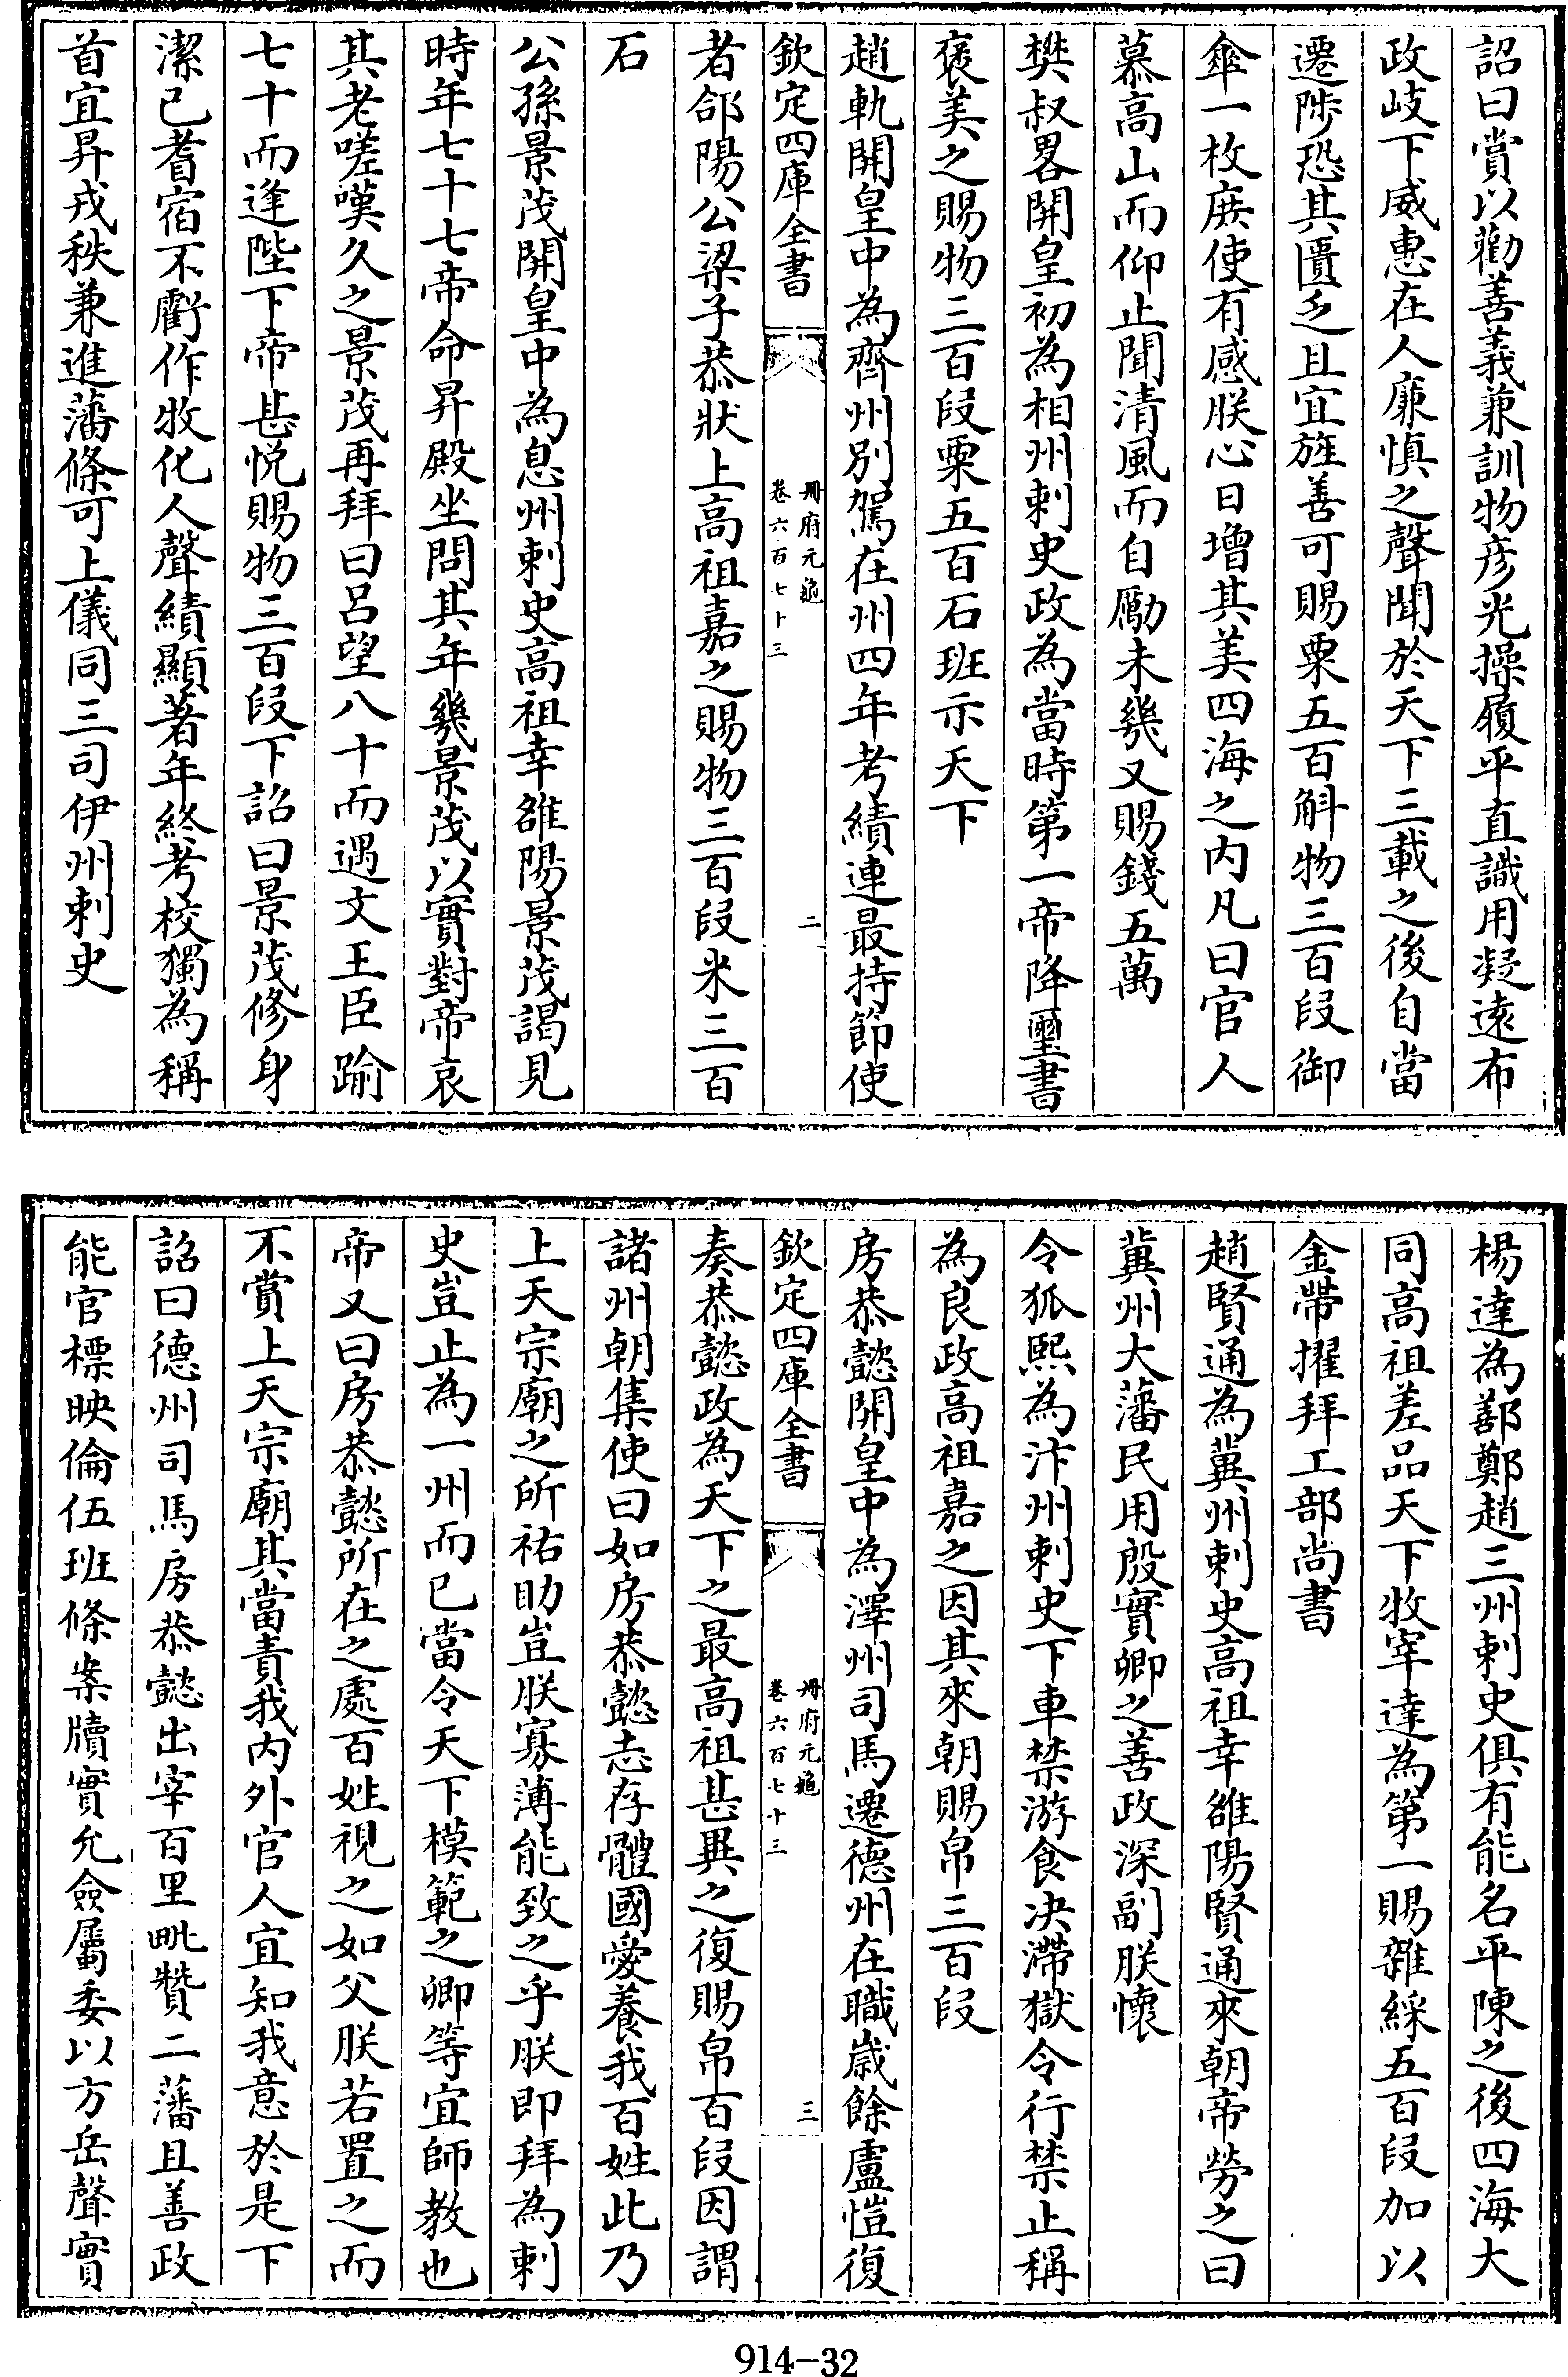 詔曰賞以勸善義兼訓物彦光操履平直識用凝遠布
政岐下威惠在人廉慎之聲聞於天下三載之後自當
遷陟恐其匱乏且宜旌善可賜粟五百斛物三百段御
傘一枚庶使有感朕心日增其美四海之内凡曰官人
慕高山而仰止聞清風而自勵未幾又賜錢五萬
樊叔畧開皇初為相州刺史政為當時第一帝降璽書
褒美之賜物三百段粟五百石班示天下
趙軌開皇中為齊州別駕在州四年考績連最持節使
欽定四庫全書
冊府元龜
卷六百七十三
二
者郃陽公梁子恭狀上高祖嘉之賜物三百段米三百
石
公孫景茂開皇中為息州刺史高祖幸雒陽景茂謁見
時年七十七帝命昇殿坐問其年幾景茂以實對帝哀
其老嗟嘆久之景茂再拜曰呂望八十而遇文王臣踰
七十而逢陛下帝甚悦賜物三百段下詔曰景茂修身
潔已耆宿不虧作牧化人聲績顯著年終考校獨為稱
首宜昇戎秩兼進藩條可上儀同三司伊州刺史
楊達為鄯鄭趙三州刺史俱有能名平陳之後四海大
同高祖差品天下牧宰達為第一賜雜綵五百段加以
金帶擢拜工部尚書
趙賢通為冀州刺史高祖幸雒陽賢通來朝帝勞之曰
冀州大藩民用殷實卿之善政深副朕懷
令狐熙為汴州刺史下車禁游食决滯獄令行禁止稱
為良政高祖嘉之因其來朝賜帛三百段
房恭懿開皇中為澤州司馬遷德州在職歲餘盧愷復
欽定四庫全書
冊府元龜
卷六百七十三
三
奏恭懿政為天下之最高祖甚異之復賜帛百段因謂
諸州朝集使曰如房恭懿志存體國愛養我百姓此乃
上天宗廟之所祐助豈朕寡薄能致之乎朕即拜為刺
史豈止為一州而已當令天下模範之卿等宜師教也
帝又曰房恭懿所在之處百姓視之如父朕若置之而
不賞上天宗廟其當責我内外官人宜知我意於是下
詔曰德州司馬房恭懿出宰百里毗贊二藩且善政
能官標映倫伍班條案牘實允僉屬委以方岳聲實
914-32